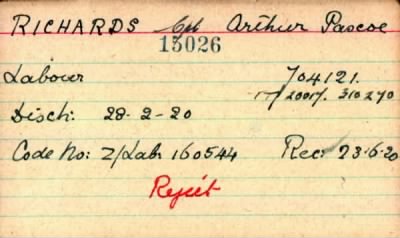 RICHARDS Cpl Arthur Pascoe
15026
Labour 704121.
20017. 310270
Disch: 28-2-20
Code No: Z/Lab 160544 Rec: 23-6-20
Reject